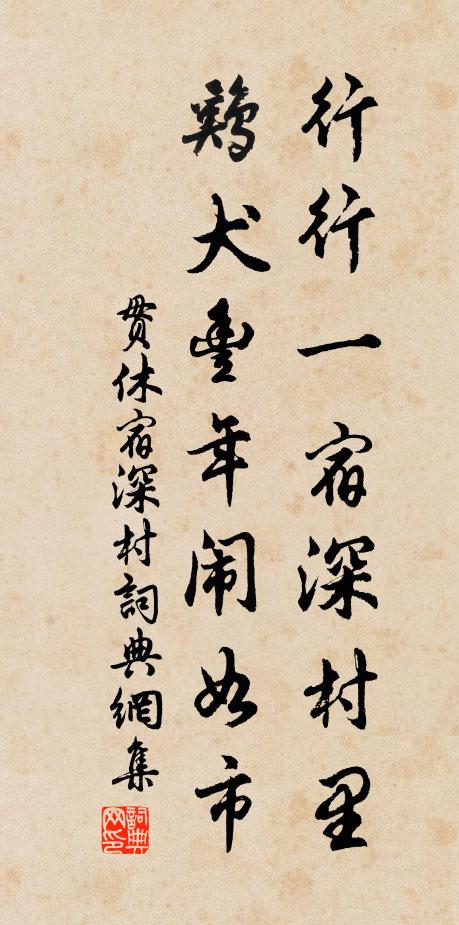 行行一宿深村里
鷄犬豐年闹如市
贯休宿深村詞典網集
詞典网印